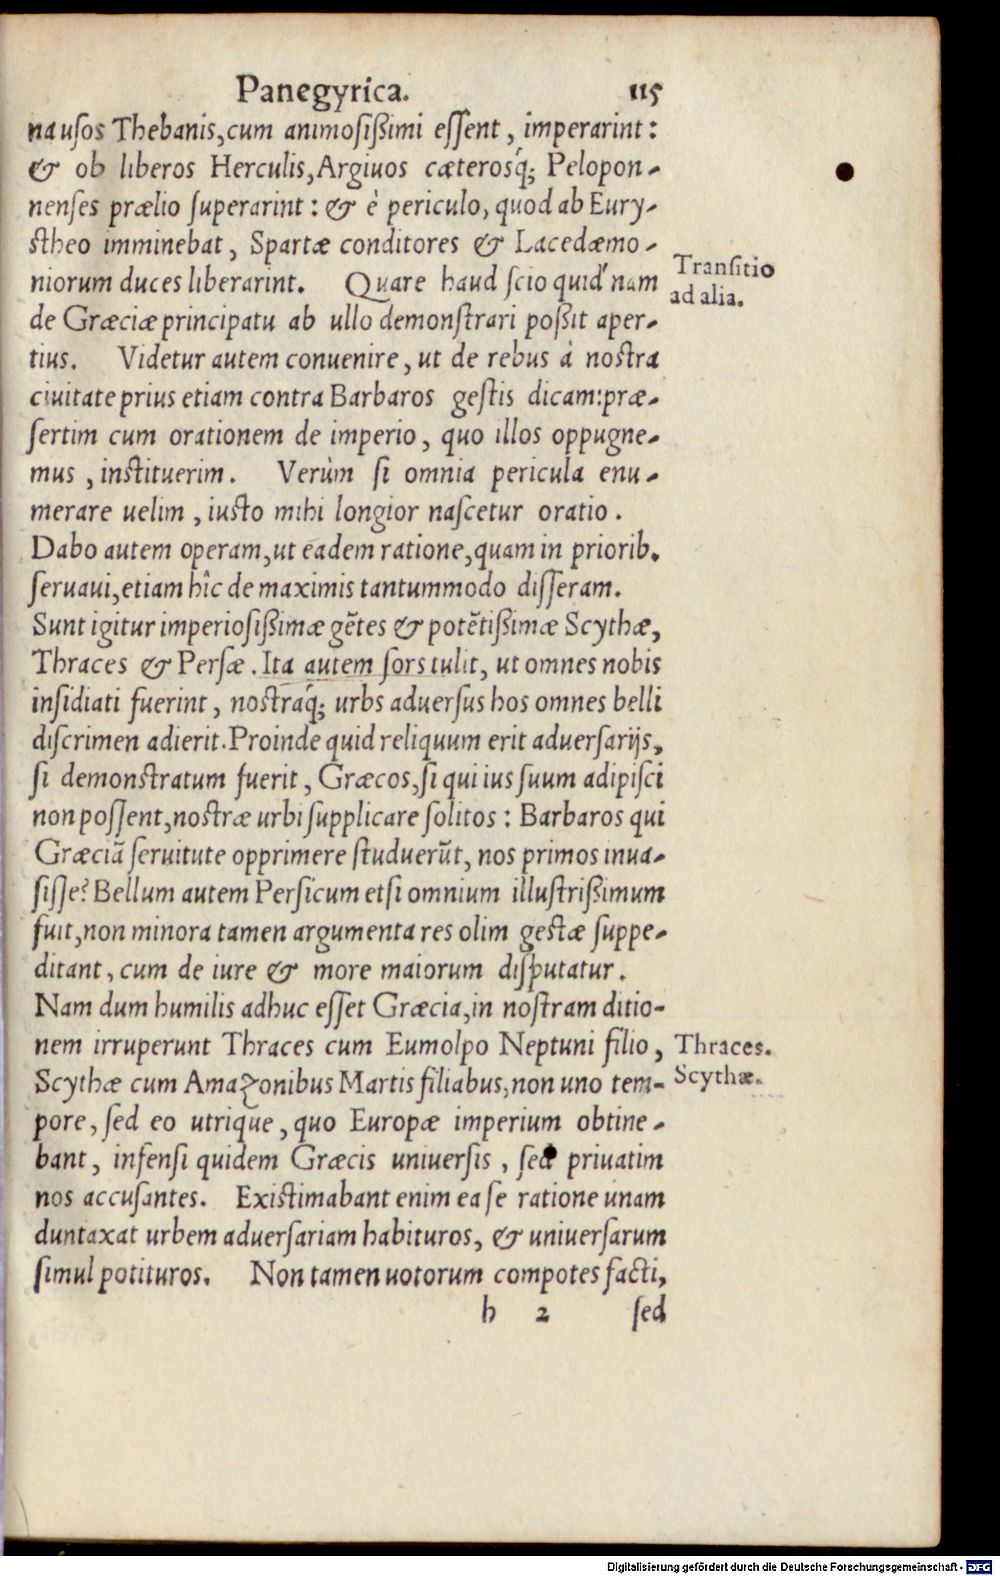 Panegyrica. 115
na usos Thebanis, cum animosißimi essent, imperarint:
& ob liberos Herculis, Argiuos cæterosq́; Pelopon-
nenses prælio superarint: & è periculo, quod ab Eury-
stheo imminebat, Spartæ conditores & Lacedæmo-
niorum duces liberarint. Quare haud scio quid'nam
Transitio
ad alia.
de Græciæ principatu ab ullo demonstrari poßit aper-
tius. Videtur autem conuenire, ut de rebus à nostra
ciuitate prius etiam contra Barbaros gestis dicam: præ-
sertim cum orationem de imperio, quo illos oppugne-
mus, instituerim. Verùm si omnia pericula enu-
merare uelim, iusto mihi longior nascetur oratio.
Dabo autem operam, ut eadem ratione, quam in priorib.
seruaui, etiam hîc de maximis tantummodo disseram.
Sunt igitur imperiosißimæ gẽtes & potẽtißimæ Scythæ,
Thraces & Persæ. Ita autem sors tulit, ut omnes nobis
insidiati fuerint, nostraq́; urbs aduersus hos omnes belli
discrimen adierit. Proinde quid reliquum erit aduersarijs,
si demonstratum fuerit, Græcos, si qui ius suum adipisci
non possent, nostræ urbi supplicare solitos: Barbaros qui
Græciã seruitute opprimere studuerũt, nos primos inua-
sisse? Bellum autem Persicum etsi omnium illustrißimum
fuit, non minora tamen argumenta res olim gestæ suppe-
ditant, cum de iure & more maiorum disputatur.
Nam dum humilis adhuc esset Græcia, in nostram ditio-
nem irruperunt Thraces cum Eumolpo Neptuni filio,
Thraces.
Scythæ.
Scythæ cum Amazonibus Martis filiabus, non uno tem-
pore, sed eo utrique, quo Europæ imperium obtine-
bant, infensi quidem Græcis uniuersis, sed priuatim
nos accusantes. Existimabant enim ea se ratione unam
duntaxat urbem aduersariam habituros, & uniuersarum
simul potituros. Non tamen uotorum compotes facti,
h 2 sed
Digitalisierung gefördert durch die Deutsche Forschungsgemeinschaft - DFG